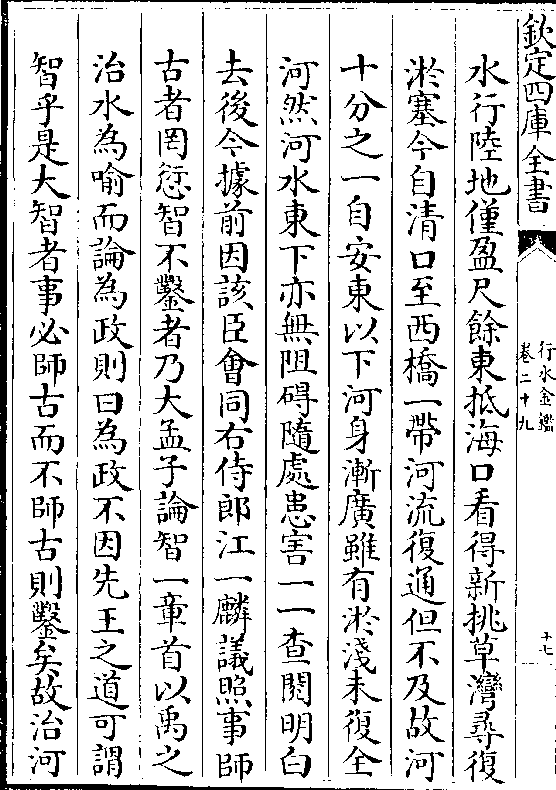 欽定四庫全書
行水金鑑
卷二十九
十七
水行陸地僅盈尺餘東抵海口看得新挑草灣尋復
淤塞今自清口至西橋一帶河流復通但不及故河
十分之一自安東以下河身漸廣雖有淤淺未復全
河然河水東下亦無阻碍隨處患害一一查閱明白
去後今據前因該臣會同右侍郎江一麟議照事師
古者罔愆智不鑿者乃大孟子論智一章首以禹之
治水為喻而論為政則曰為政不因先王之道可謂
智乎是大智者事必師古而不師古則鑿矣故治河